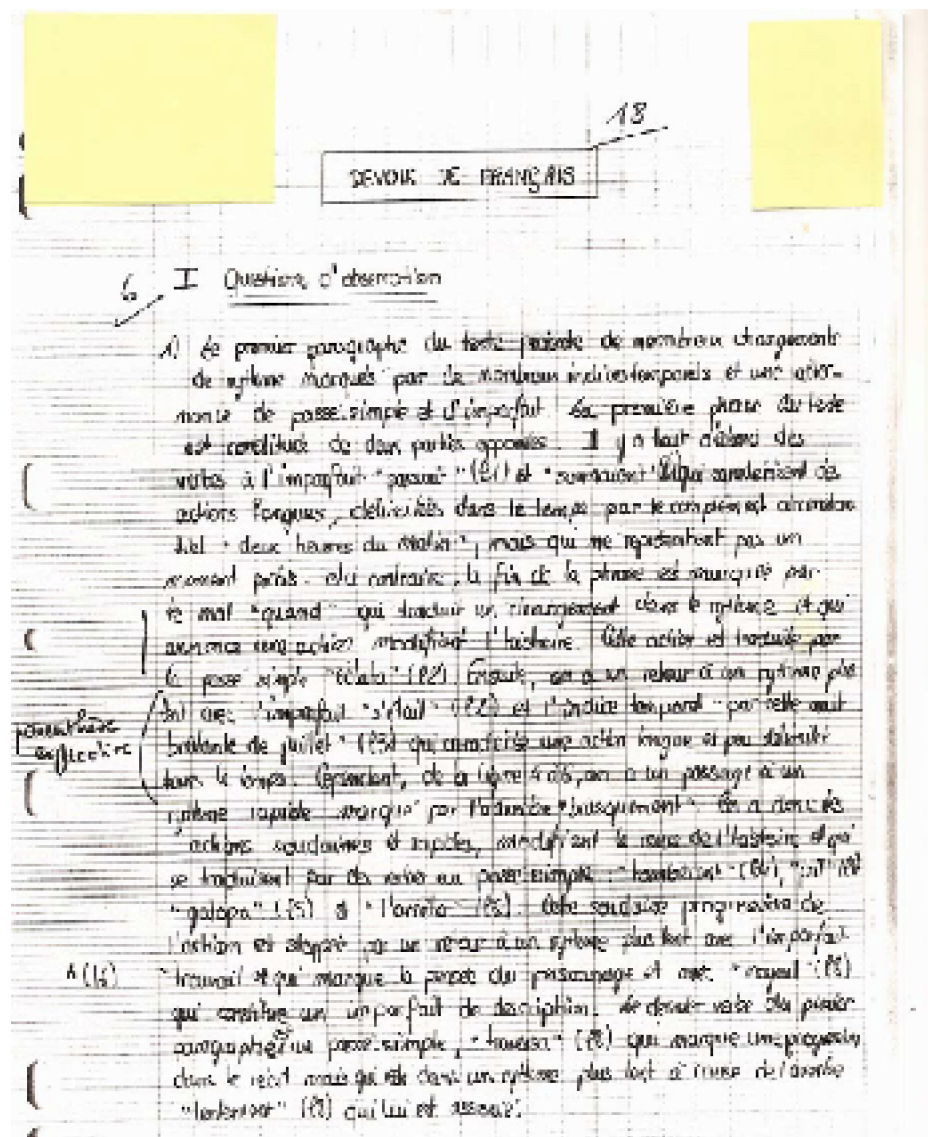 18
DEVOIR DE FRANÇAIS
6
I Questions d'observation
1) Le premier paragraphe du texte présente de nombreux changements
de rythme marqués par de nombreux indices temporels et une alter-
nance de passé simple et d'imparfait. La première phrase du texte
est constituée de deux parties opposées. Il y a tout d'abord des
verbes à l'imparfait (l1) et qui des
actions longues, dans le temps par le complément
"deux heures du matin", mais qui ne représentent pas un
moment précis. Au contraire, la fin de la phrase est marquée par
le mot "quand" qui traduit un changement dans le rythme et qui
annonce une action modifiant l'histoire. Cette action est traduite par
le passé simple "éclata" (l2). Ensuite, on a un retour à un rythme plus
avec l'imparfait "s'était" (l2) et l'indice temporel "par cette nuit
brûlante de juillet" (l3) qui caractérise une action longue et peu
parenthèse
explicative
dans le temps. Cependant, de la ligne 4 à 6, on a un passage à un
rythme rapide marqué par l'adverbe "brusquement". On a donc des
actions soudaines et rapides, modifiant le cours de l'histoire et qui
se traduisent par des verbes au passé simple :
"galopa" (l5) et "l'arrêta" Cette soudaine progression de
l'action est par un retour à un rythme plus lent avec l'imparfait
travail et qui marque la pensée du personnage et avec (l8)
qui constitue un imparfait de description. Le dernier verbe du premier
paragraphe au passé simple, "traversa" (l8) qui marque une progression
dans le récit mais qui dans un rythme plus lent à cause de l'adverbe
"lentement" (l8) qui lui est associé.